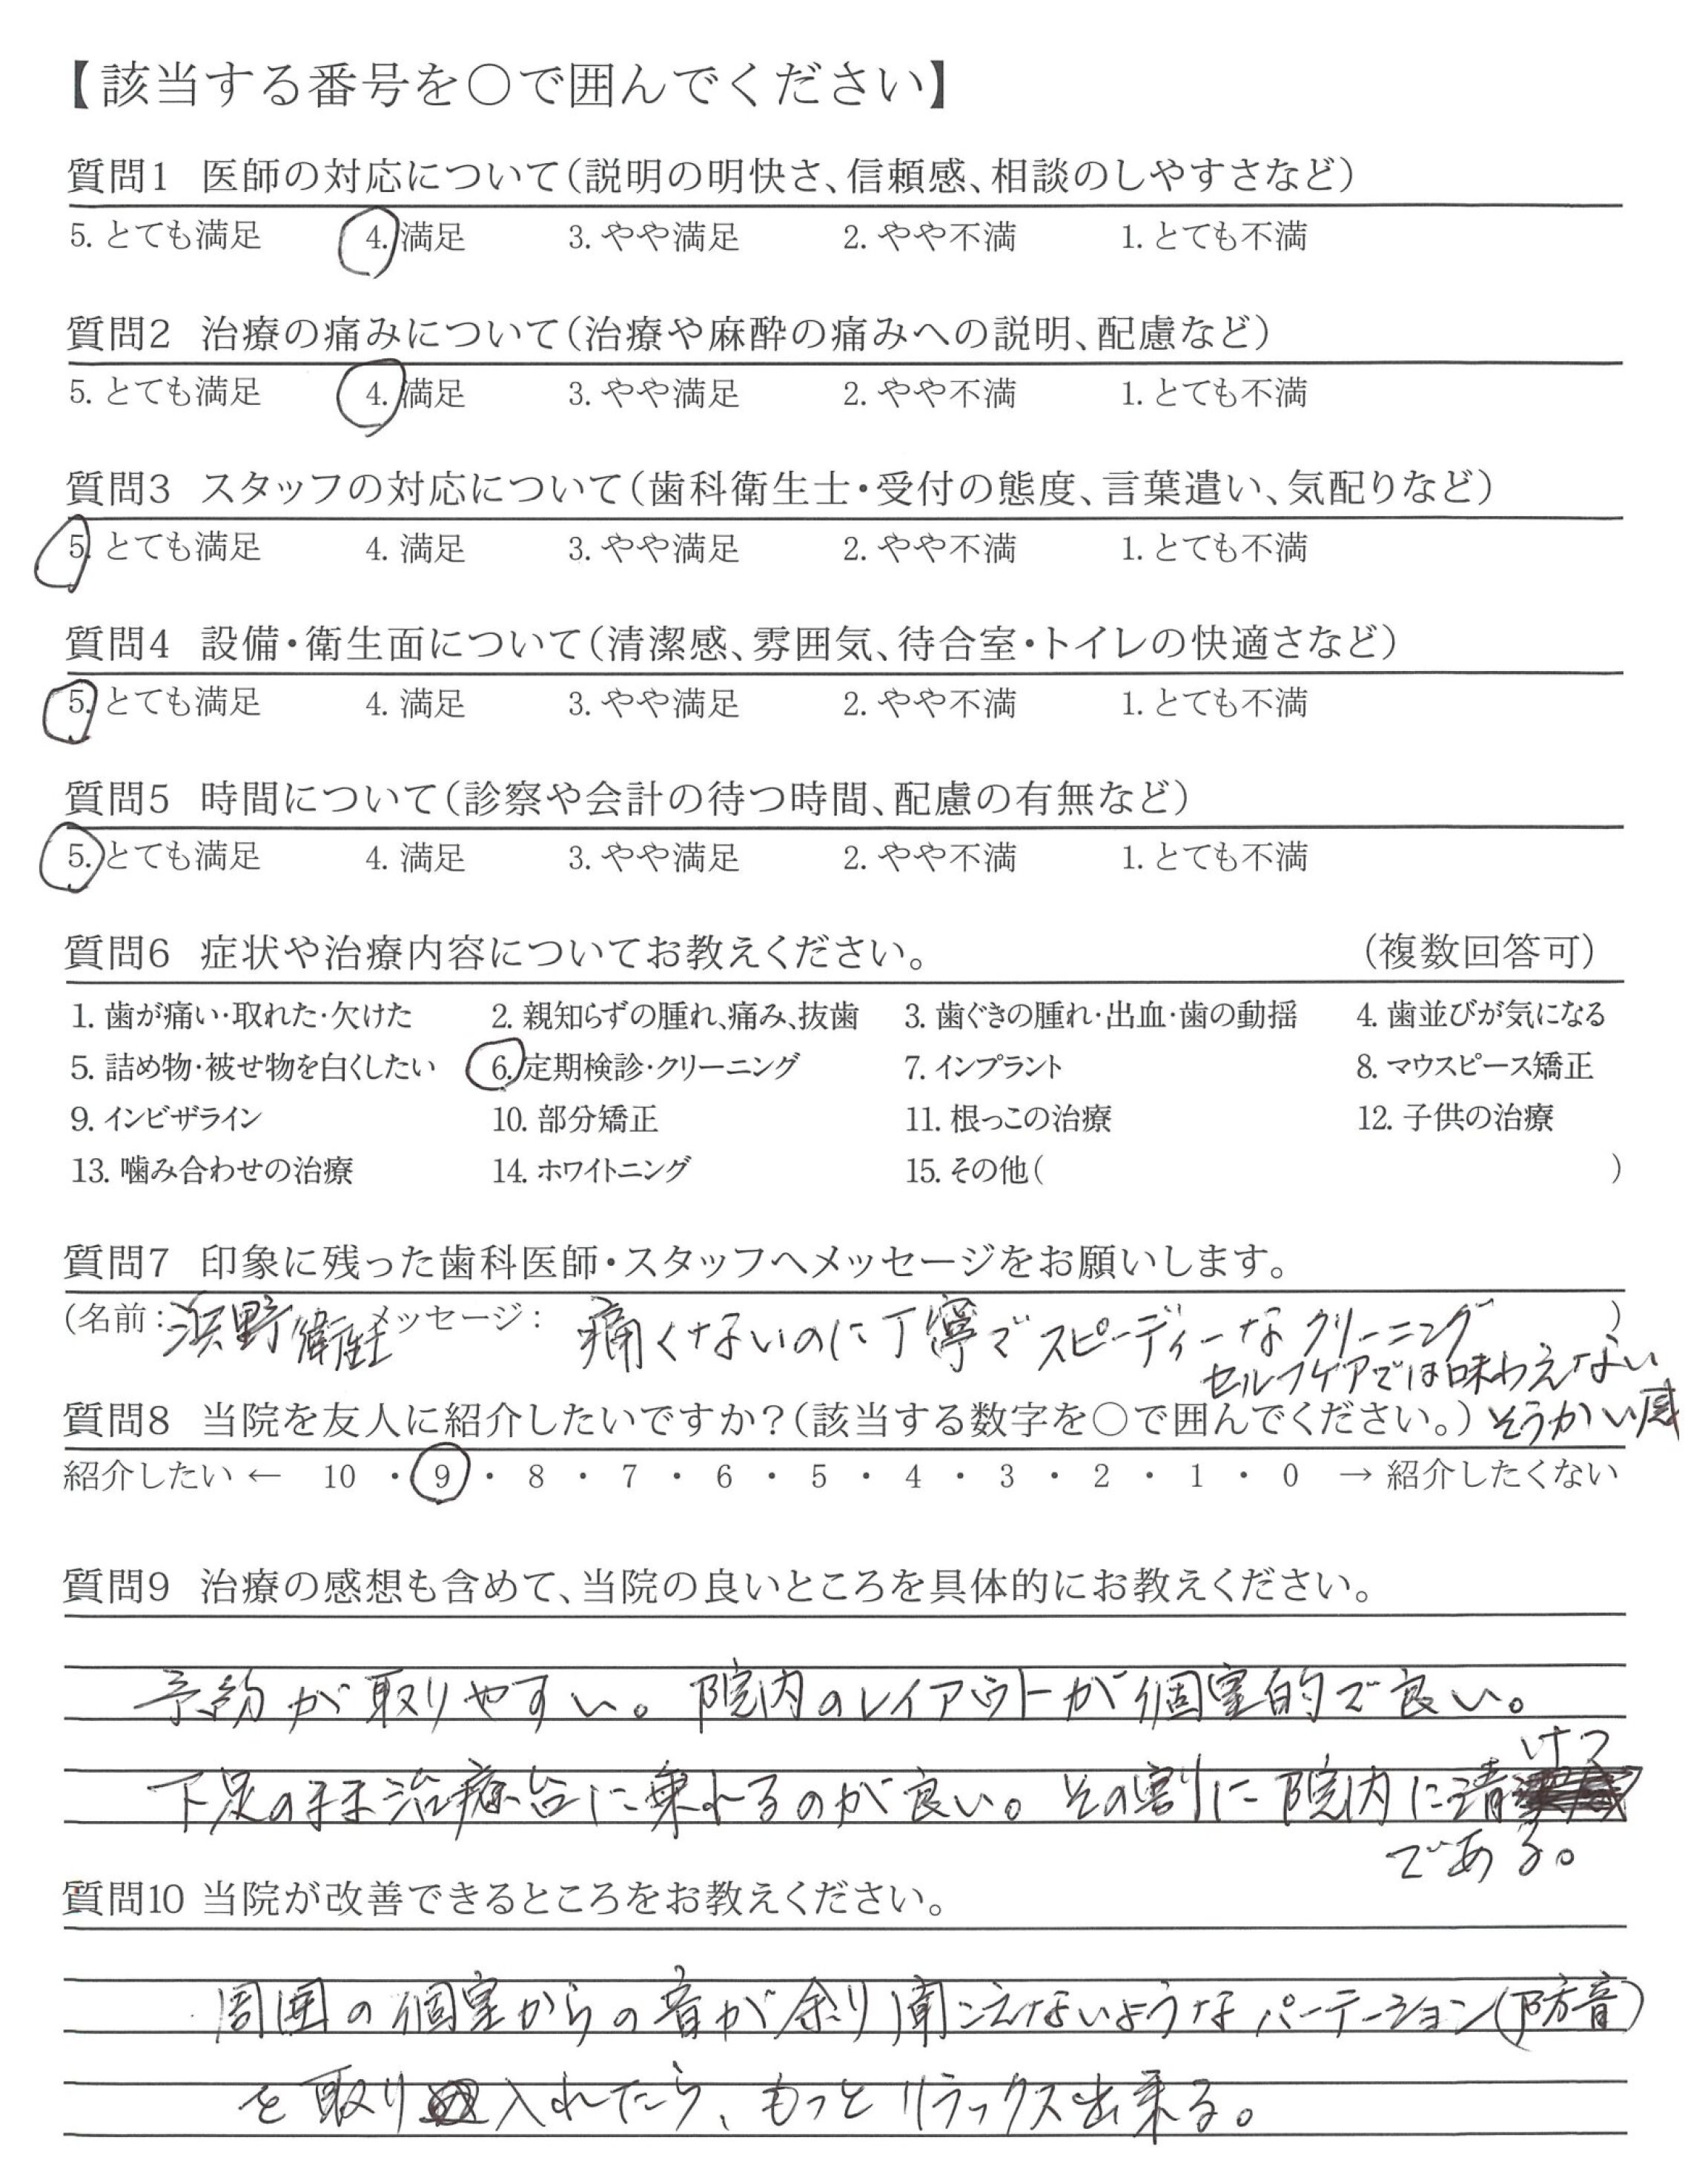 【該当する番号を○で囲んでください】
質問1 医師の対応について（説明の明快さ、信頼感、相談のしやすさなど）
5. とても満足 4. 満足 3. やや満足 2. やや不満 1. とても不満
質問2 治療の痛みについて（治療や麻酔の痛みへの説明、配慮など）
5. とても満足 4. 満足 3. やや満足 2. やや不満 1. とても不満
質問3 スタッフの対応について（歯科衛生士・受付の態度、言葉遣い、気配りなど）
5. とても満足 4. 満足 3. やや満足 2. やや不満 1. とても不満
質問4 設備・衛生面について（清潔感、雰囲気、待合室・トイレの快適さなど）
5. とても満足 4. 満足 3. やや満足 2. やや不満 1. とても不満
質問5 時間について（診察や会計の待つ時間、配慮の有無など）
5. とても満足 4. 満足 3. やや満足 2. やや不満 1. とても不満
質問6 症状や治療内容についてお教えください。 （複数回答可）
1. 歯が痛い・取れた・欠けた 2. 親知らずの腫れ、痛み、抜歯 3. 歯ぐきの腫れ・出血・歯の動揺 4. 歯並びが気になる
5. 詰め物・被せ物を白くしたい 6. 定期検診・クリーニング 7. インプラント 8. マウスピース矯正
9. インビザライン 10. 部分矯正 11. 根っこの治療 12. 子供の治療
13. 噛み合わせの治療 14. ホワイトニング 15. その他（ ）
質問7 印象に残った歯科医師・スタッフへメッセージをお願いします。
（名前：浜野衛生士 メッセージ： 痛くないのに丁寧でスピーディーなクリーニング ）
セルフケアでは味わえない
そうかい感
質問8 当院を友人に紹介したいですか？（該当する数字を○で囲んでください。）
紹介したい ← 10 ・ 9 ・ 8 ・ 7 ・ 6 ・ 5 ・ 4 ・ 3 ・ 2 ・ 1 ・ 0 → 紹介したくない
質問9 治療の感想も含めて、当院の良いところを具体的にお教えください。
予約が取りやすい。院内のレイアウトが個室的で良い。
下足のまま治療台に乗れるのが良い。その割に院内に清けつ
である。
質問10 当院が改善できるところをお教えください。
周囲の個室からの音が余り聞こえないようなパーテーション（防音）
を取り入れたら、もっとリラックス出来る。